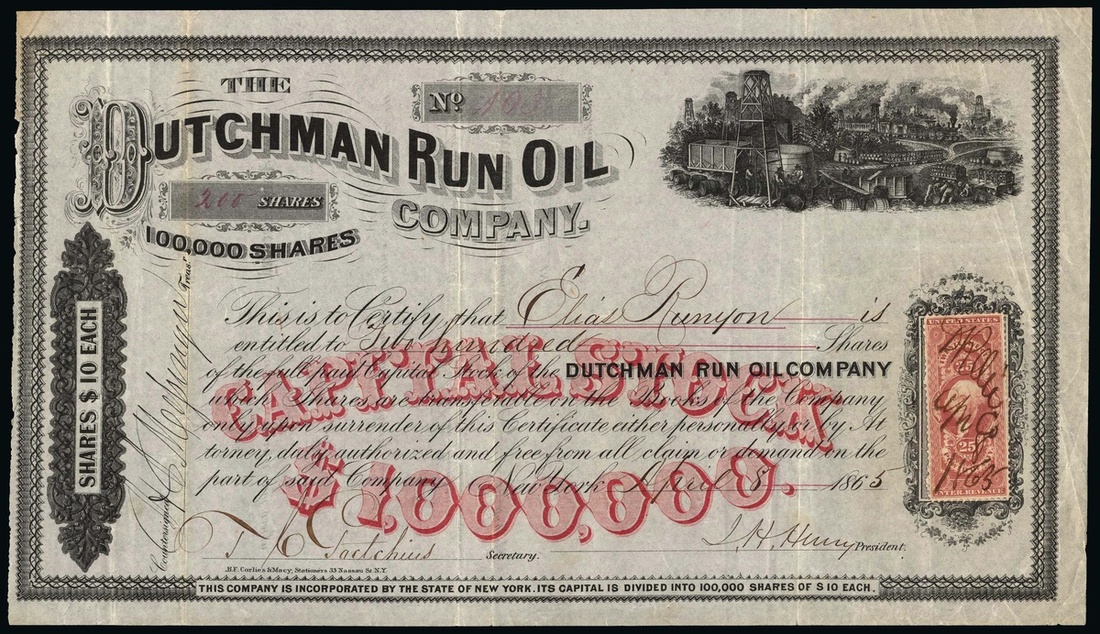 THE
No
DUTCHMAN RUN OIL
COMPANY.
200 SHARES
100,000 SHARES
SHARES $10 EACH
Countersigned
Treasr.
This is to Certify, that Elias Runyon is
entitled to Two hundred Shares
of the full paid Capital Stock of the DUTCHMAN RUN OIL COMPANY
which Shares are transferable on the Books of the Company
only upon surrender of this Certificate either personally or by At
torney, duly authorized and free from all claim or demand on the
part of said Company New York April 8 1865
CAPITAL STOCK
$1,000,000.
UNITED STATES
25
INTER. REVENUE
1865
Secretary.
J. H. Henry President.
B.F. Corlies & Macy, Stationers 33 Nassau St. N.Y.
THIS COMPANY IS INCORPORATED BY THE STATE OF NEW YORK. ITS CAPITAL IS DIVIDED INTO 100,000 SHARES OF $10 EACH.